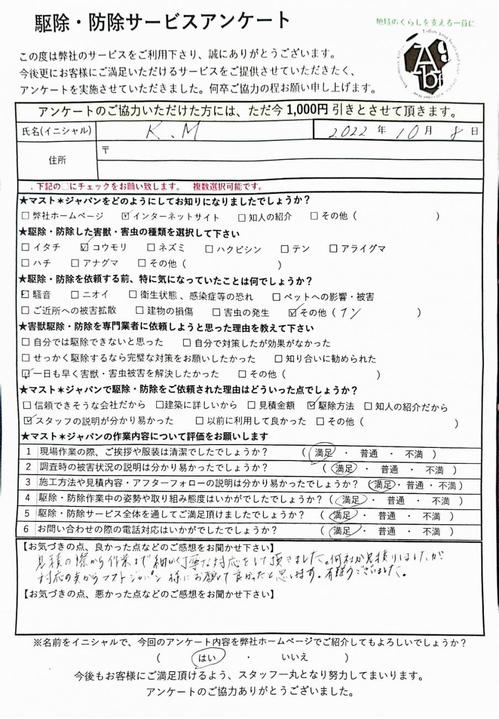 駆除・防除サービスアンケート
地域のくらしを支える一員に
この度は弊社のサービスをご利用下さり、誠にありがとうございます。
今後更にお客様にご満足いただけるサービスを提供させていただきたく、
アンケートを実施させていただきました。何卒ご協力の程お願い申し上げます。
アンケートのご協力いただけた方には、ただ今1,000円引きとさせて頂きます。
氏名(イニシャル) K.M 2022年10月8日
住所 〒
↓下記の□にチェックをお願い致します。 複数選択可能です。
★マスト＊ジャパンをどのようにしてお知りになりましたでしょうか?
□弊社ホームページ ☑インターネットサイト □知人の紹介 □その他( )
★駆除・防除した害獣・害虫の種類を選択して下さい
□イタチ ☑コウモリ □ネズミ □ハクビシン □テン □アライグマ
□ハチ □アナグマ □その他( )
★駆除・防除を依頼する前、特に気になっていたことは何でしょうか?
□騒音 □ニオイ □衛生状態、感染症等の恐れ □ペットへの影響・被害
□ご近所への被害拡散 □建物の損傷 □害虫の発生 ☑その他(フン )
★害獣駆除・防除を専門業者に依頼しようと思った理由を教えて下さい
□自分では駆除できないと思った □自分で対策したが効果がなかった
□せっかく駆除するなら完璧な対策をお願いしたかった □知り合いに勧められた
☑一日も早く害獣・害虫被害を解決したかった □その他( )
★マスト＊ジャパンで駆除・防除をご依頼された理由はどういった点でしょうか?
□信頼できそうな会社だから □建築に詳しいから □見積金額 ☑駆除方法 □知人の紹介だから
☑スタッフの説明が分かり易かった □以前に利用して良かった □その他( )
★マスト＊ジャパンの作業内容について評価をお願いします
1 現場作業の際、ご挨拶や服装は清潔でしたでしょうか? ( 満足 ・ 普通 ・ 不満 )
2 調査時の被害状況の説明は分かり易かったでしょうか? ( 満足 ・ 普通 ・ 不満 )
3 施工方法や見積内容・アフターフォローの説明は分かり易かったでしょうか? ( 満足 ・ 普通 ・ 不満 )
4 駆除・防除作業中の姿勢や取り組み態度はいかがでしたでしょうか? ( 満足 ・ 普通 ・ 不満 )
5 駆除・防除サービス全体を通してご満足頂けましたでしょうか? ( 満足 ・ 普通 ・ 不満 )
6 お問い合わせの際の電話対応はいかがでしたでしょうか? ( 満足 ・ 普通 ・ 不満 )
【お気づきの点、良かった点などのご感想をお聞かせ下さい】
見積の際から作業まで細かく丁寧な対応をして頂きました。何社か見積りしましたが
対応の良からマストジャパン様にお願いして良かったと思います。有難うございました。
【お気づきの点、悪かった点などのご感想をお聞かせ下さい】
※名前をイニシャルで、今回のアンケート内容を弊社ホームページでご紹介してもよろしいでしょうか?
( はい ・ いいえ )
今後もお客様にご満足頂けるよう、スタッフ一丸となり努力してまいります。
アンケートのご協力ありがとうございました。